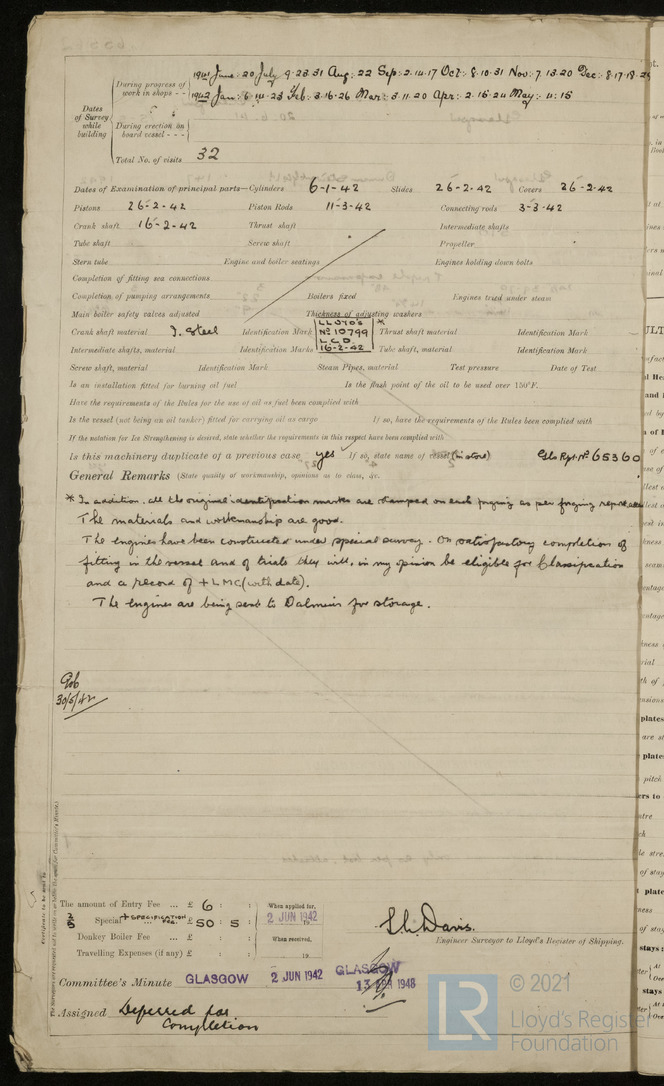 Dates of Survey while building
During progress of work in shops - - 1941 June: 20 July 9-23-31 Aug: 22 Sep: 2-14-17 Oct: 8-10-31 Nov: 7-13-20 Dec: 8-17-18-
1942 Jan: 6- -23 Feb: 3-16-26 Mar: 3-11-20 Apr: 2-16-24 May: 11-15
During erection on board vessel - - -
Total No. of visits 32
Dates of Examination of principal parts—Cylinders 6-1-42 Slides 26-2-42 Covers 26-2-42
Pistons 26-2-42 Piston Rods 11-3-42 Connecting rods 3-3-42
Crank shaft 16-2-42 Thrust shaft Intermediate shafts
Tube shaft Screw shaft Propeller
Stern tube Engine and boiler seatings Engines holding down bolts
Completion of fitting sea connections
Completion of pumping arrangements Boilers fixed Engines tried under steam
Main boiler safety valves adjusted Thickness of adjusting washers
Crank shaft material I. Steel Identification Mark LLOYD'S No 10799 L.C.D. 16-2-42 * Thrust shaft material Identification Mark
Intermediate shafts, material Identification Marks Tube shaft, material Identification Mark
Screw shaft, material Identification Mark Steam Pipes, material Test pressure Date of Test
Is an installation fitted for burning oil fuel Is the flash point of the oil to be used over 150°F.
Have the requirements of the Rules for the use of oil as fuel been complied with
Is the vessel (not being an oil tanker) fitted for carrying oil as cargo If so, have the requirements of the Rules been complied with
If the notation for Ice Strengthening is desired, state whether the requirements in this respect have been complied with
Is this machinery duplicate of a previous case yes If so, state name of vessel (in store) Gls Rpt. No 65360
General Remarks (State quality of workmanship, opinions as to class, &c.
* In addition all the original identification marks are stamped on each forging as per forging report
The materials and workmanship are good.
The engines have been constructed under special survey. On satisfactory completion of
fitting in the vessel and of trials they will, in my opinion be eligible for Classification
and a record of + LMC (with date).
The engines are being sent to Dalmuir for storage.
30/5/42
Certificate to be sent to
The amount of Entry Fee ... £ 6 : : When applied for,
Special + SPECIFICATION FEE. £ 50 : 5 : 2 JUN 1942
Donkey Boiler Fee ... £ : : When received,
Travelling Expenses (if any) £ : : 19
Davis.
Engineer Surveyor to Lloyd's Register of Shipping.
Committee's Minute GLASGOW 2 JUN 1942 GLASGOW 13 APR 1948
Assigned Deferred for
Completion
LR © 2021
Lloyd's Register
Foundation